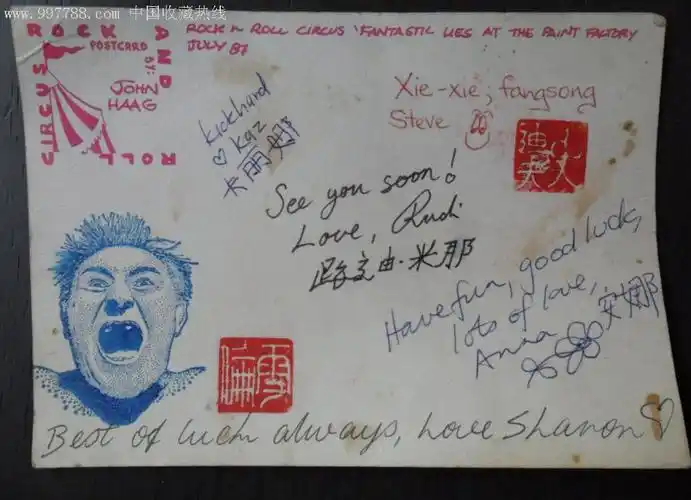 www.997788.com 中国收藏热线
ROCK AND ROLL CIRCUS
POSTCARD
BY:
JOHN HAAG
ROCK N ROLL CIRCUS 'FANTASTIC LIES AT THE PAINT FACTORY
JULY 87
kickhard
♡ Kaz
Xie-xie; fangsong
Steve
See you soon!
Love, Rudi
路迪·米那
Have fun, good luck,
lots of love,
Anna 安娜
雪
Best of luck always, Love Shanon ♡